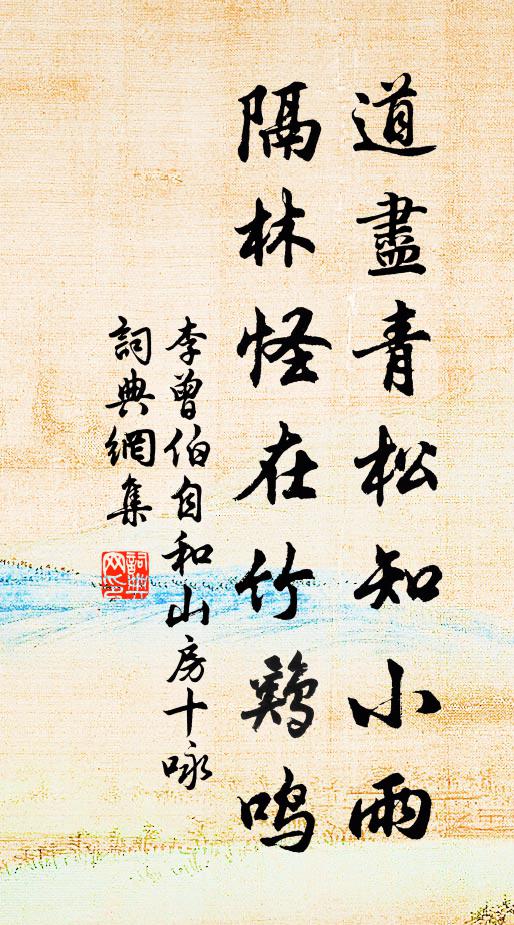 道盡青松知小雨
隔林怪在竹鷄鳴
李曾伯自和山房十咏
詞典網集